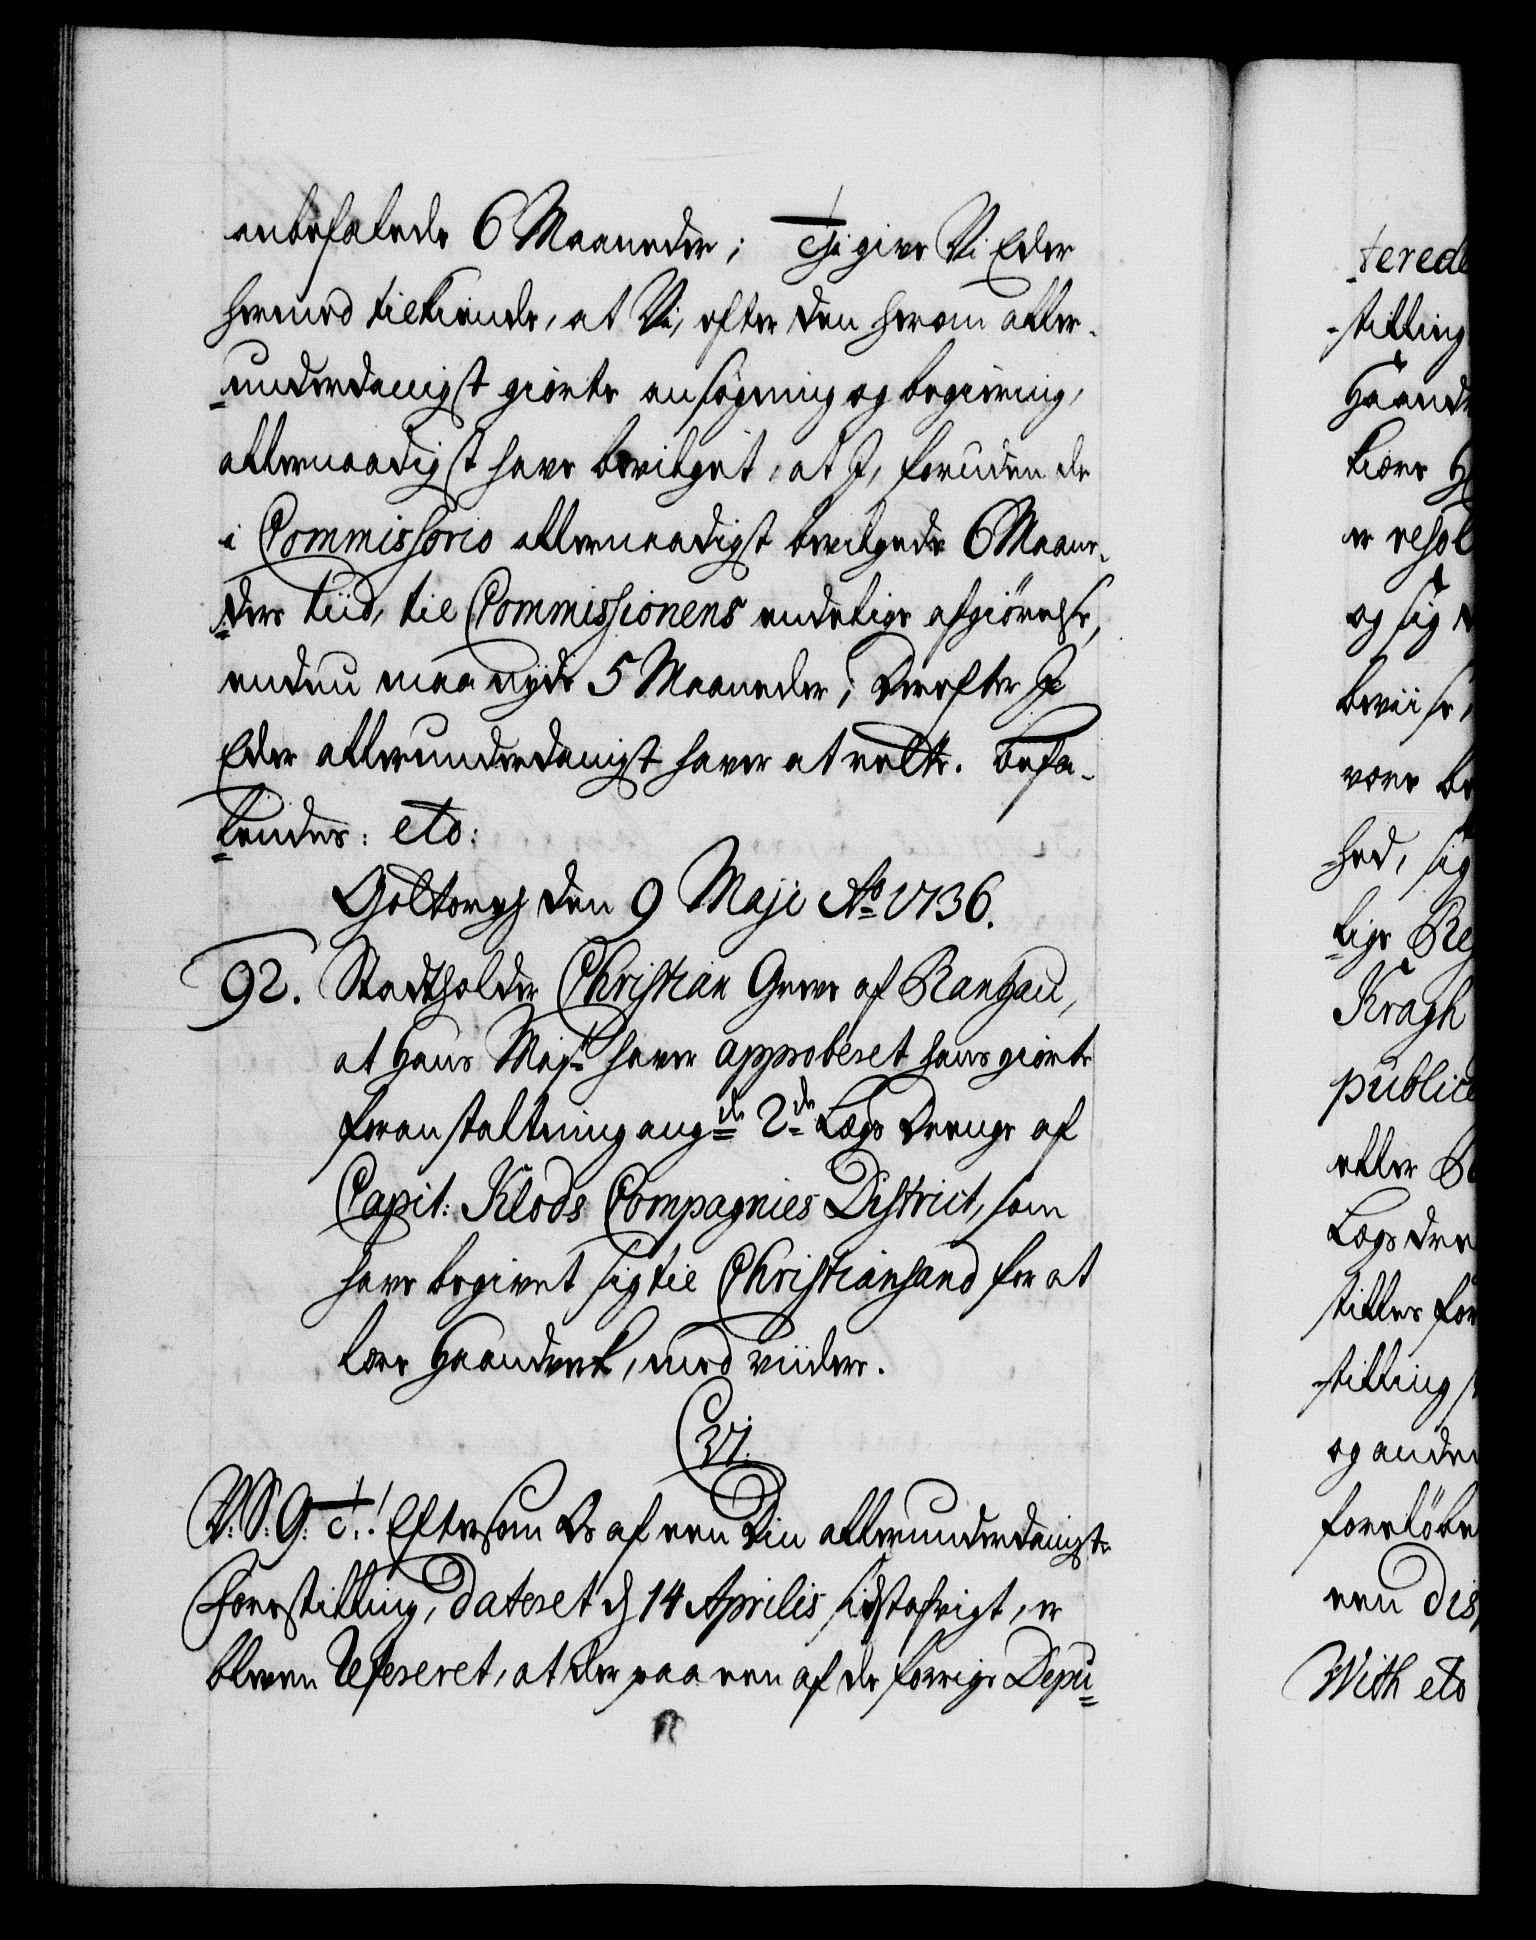 anbefalede 6 Maaneder; Thi give Vi Eder
hermed tilkiende, at Vi, efter den herom aller-
underdanigst giorte ansøgning og begiæring,
allernaadigst have bevilget, at I, foruden de
i Commissorio allernaadigst bevilgede 6 Maane-
ders tiid, til Commissionens endelige afgiørelse,
endnu maa nyde 5 Maaneder; Derefter I
Eder allerunderdanigst haver at rette. Befa-
lendes: etc:
Gottorph den 9 Maji Ao 1736.
92. Stadtholder Christian Greve af Rantzau,
at Hans Mayt: haver approberet hans giorte
foranstaltning angde 2de Lægs Drenge af
Capit: Klods Compagnies District, som
have begivet sig til Christiansand for at
lære Haandverk, med viidere.
C VI.
V: S: G: T: ! Eftersom Os af een Din allerunderdanigste
Forestilling, dateret d 14 Aprilis sidstafvigt, er
bleven refereret, at der paa een af de forrige Depu-
terede
-stilling
Haand
lære H
er resol
og sig
beviise,
være be
-hed, sig
lige Re
Kragh
public
eller
Lægs dre
stilles for
-stilling
og anden
foreløbe
een dis
With etc